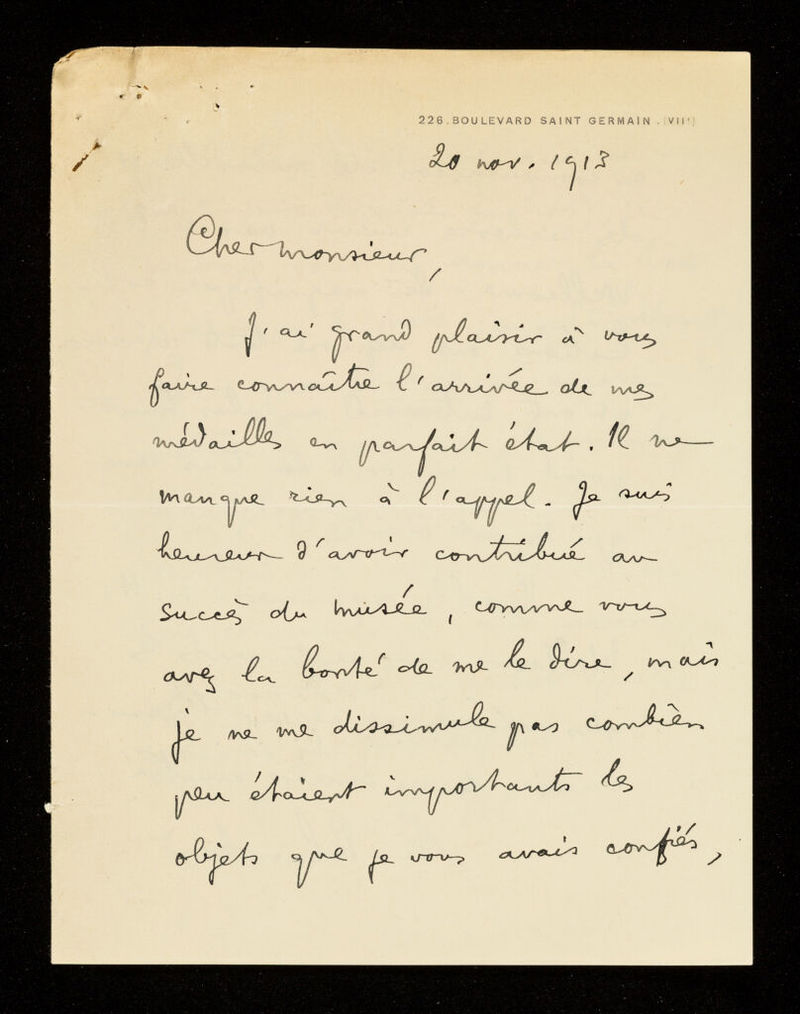 226. BOULEVARD SAINT GERMAIN. (VIIe)
20 nov. 1913
Cher monsieur,
J'ai grand plaisir à vous
faire connaître l'arrivée de mes
médailles en parfait état. Il ne
manque rien à l'appel. Je suis
heureux d'avoir contribué au
succès du musée, comme vous
avez la bonté de me le dire, mais
je ne me dissimule pas combien
peu étaient importants les
objets que je vous avais confiés,